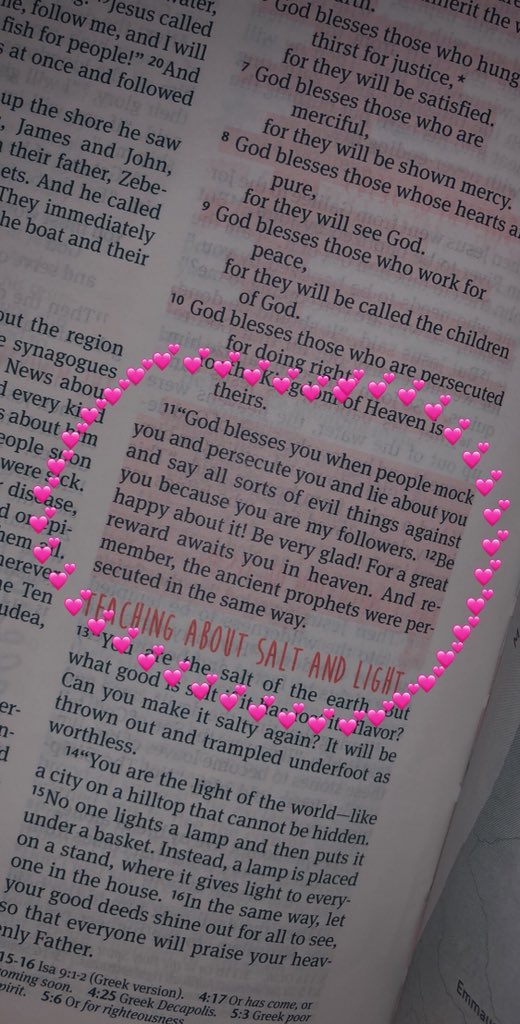 water,
me, follow me, and I will
fish for people!” 20And
s at once and followed
up the shore he saw
, James and John,
their father, Zebe-
ets. And he called
They immediately
he boat and their
out the region
e synagogues
News about
d every kind
s about him
eople soon
were sick.
r disease,
d or epi-
them all.
herever
he Ten
udea,
inherit the
God blesses those who
thirst for justice,*
for they will be satisfied.
7 God blesses those who are
merciful,
for they will be shown mercy.
8 God blesses those whose hearts
pure,
for they will see God.
9 God blesses those who work for
peace,
for they will be called the children
of God.
10 God blesses those who are persecuted
for doing right,
Kingdom of Heaven is
theirs.
11“God blesses you when people mock
you and persecute you and lie about you
and say all sorts of evil things against
you because you are my followers. 12Be
happy about it! Be very glad! For a great
reward awaits you in heaven. And re-
member, the ancient prophets were per-
secuted in the same way.
TEACHING ABOUT SALT AND LIGHT
13“You are the salt of the earth. But
what good is salt if it has lost its flavor?
Can you make it salty again? It will be
thrown out and trampled underfoot as
worthless.
14“You are the light of the world—like
a city on a hilltop that cannot be hidden.
15No one lights a lamp and then puts it
under a basket. Instead, a lamp is placed
on a stand, where it gives light to every-
one in the house. 16In the same way, let
your good deeds shine out for all to see,
so that everyone will praise your heav-
enly Father.
15-16 Isa 9:1-2 (Greek version). 4:17 Or has come, or
coming soon. 4:25 Greek Decapolis. 5:3 Greek poor
spirit. 5:6 Or for righteousness
Emmau